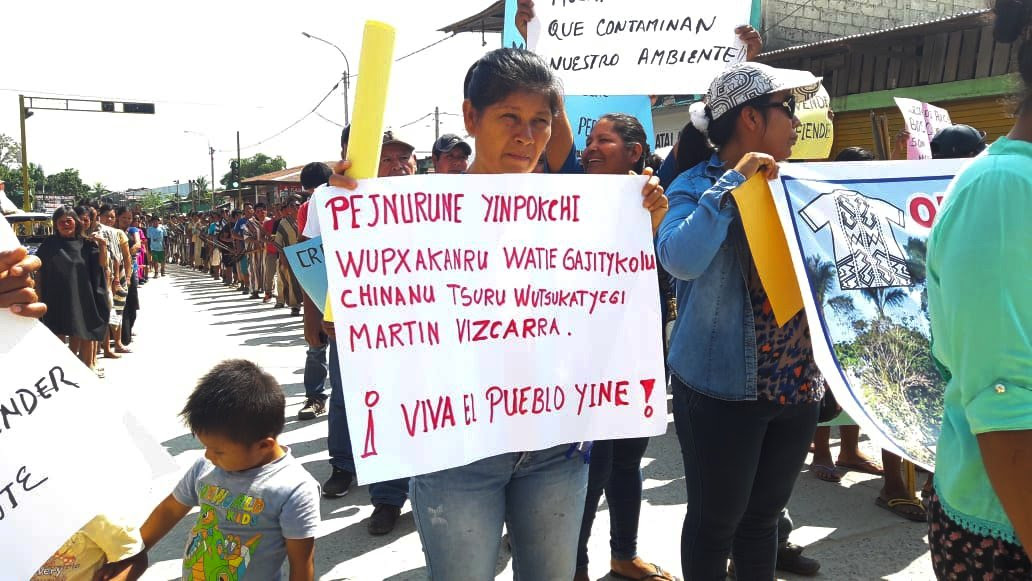 QUE CONTAMINAN
NUESTRO AMBIENTE
PEJNURUNE YINPOKCHI
WUPXAKANRU WATIE GAJITYKOLU
CHINANU TSURU WUTSUKATYEGI
MARTIN VIZCARRA.
¡ VIVA EL PUEBLO YINE !
CR
KIDS